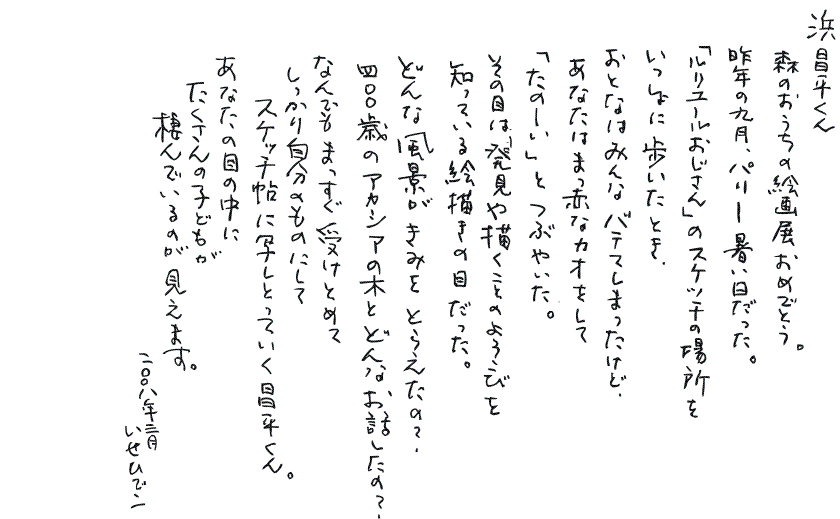 浜昌平くん
森のおうちの絵画展おめでとう。
昨年の九月、パリー暑い日だった。
「ルリユールおじさん」のスケッチの場所を
いっしょに歩いたとき、
おとなはみんなバテてしまったけど、
あなたはまっ赤なカオをして
「たのしい」とつぶやいた。
その目は、発見や描くことのよろこびを
知っている絵描きの目だった。
どんな風景がきみをとらえたの?
四〇〇歳のアカシアの木とどんなお話したの?
なんでもまっすぐ受けとめて
しっかり自分のものにして
スケッチ帖に写しとっていく昌平くん。
あなたの目の中に
たくさんの子どもが
棲んでいるのが見えます。
二〇〇八年三月
いせひでこ